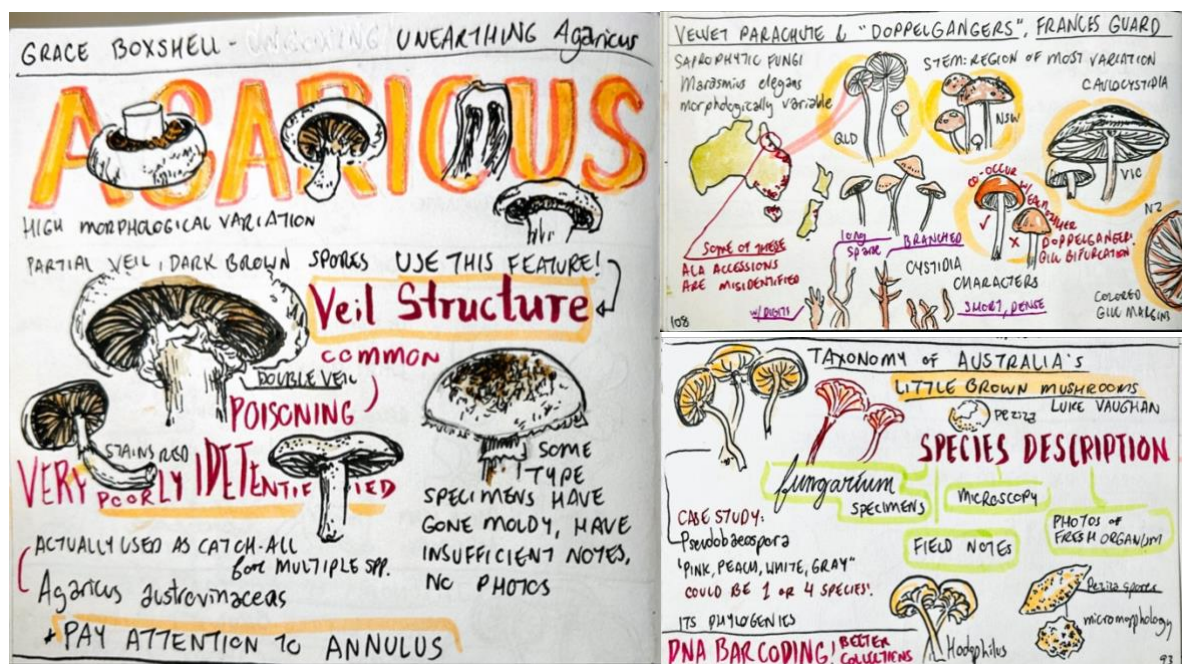 GRACE BOXSHELL - UNBOXING UNEARTHING Agaricus
AGARICUS
HIGH MORPHOLOGICAL VARIATION
PARTIAL VEIL, DARK BROWN SPORES USE THIS FEATURE!
Veil Structure
COMMON
DOUBLE VEIL
POISONING
STAINS RED
VERY POORLY IDETENTIFIED
SOME
TYPE
SPECIMENS HAVE
GONE MOLDY, HAVE
INSUFFICIENT NOTES,
NO PHOTOS
ACTUALLY USED AS CATCH-ALL
for MULTIPLE SPP.
Agaricus austrovinaceus
* PAY ATTENTION TO ANNULUS
VELVET PARACHUTE & "DOPPELGANGERS", FRANCES GUARD
SAPROPHYTIC FUNGI
Marasmius elegans
morphologically variable
STEM: REGION OF MOST VARIATION
CAULOCYSTIDIA
QLD
NSW
VIC
NZ
CO-OCCUR W/
EACH OTHER
DOPPELGANGER:
GILL BIFURCATION
SOME OF THESE
ALA ACCESSIONS
ARE MISIDENTIFIED
long
sparse
BRANCHED
CYSTIDIA
CHARACTERS
W/ DIGITS
SHORT, DENSE
COLORED
GILL MARGINS
108
TAXONOMY OF AUSTRALIA'S
LITTLE BROWN MUSHROOMS
LUKE VAUGHAN
Peziza
SPECIES DESCRIPTION
fungarium
SPECIMENS
MICROSCOPY
FIELD NOTES
PHOTOS of
FRESH ORGANISM
CASE STUDY:
Pseudobaeospora
"PINK, PEACH, WHITE, GRAY"
COULD BE 1 OR 4 SPECIES!
ITS PHYLOGENICS
DNA BARCODING! BETTER
COLLECTIONS
Hodophilus
Peziza spores
micromorphology
93